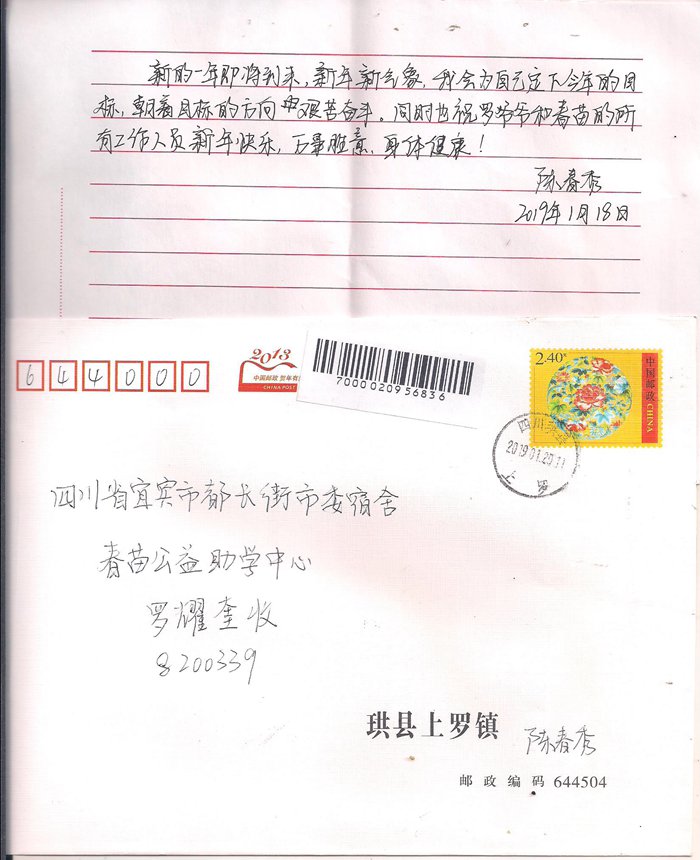 新的一年即将到来，新年新气象，我会为自己定下今年的目
标，朝着目标的方向艰苦奋斗。同时也祝罗爷爷和春苗的所
有工作人员新年快乐，万事胜意，身体健康！
陈春秀
2019年1月18日
644000
2013
中国邮政 贺年有
CHINA POST
7000020956836
2.40元
中国邮政 CHINA
四川
2019.01.20.11
上罗
四川省宜宾市都长街市委宿舍
春苗公益助学中心
罗耀奎收
8200339
珙县上罗镇 陈春秀
邮政编码 644504